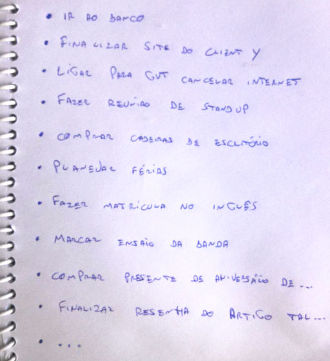 • IR AO BANCO
• FINALIZAR SITE DO CLIENT Y
• LIGAR PARA GVT CANCELAR INTERNET
• FAZER REUNIÃO DE STANDUP
• COMPRAR CADEIRAS DE ESCRITÓRIO
• PLANEJAR FÉRIAS
• FAZER MATRÍCULA NO INGLÊS
• MARCAR ENSAIO DA BANDA
• COMPRAR PRESENTE DE ANIVERSÁRIO DE ...
• FINALIZAR RESENHA DO ARTIGO TAL...
• ...